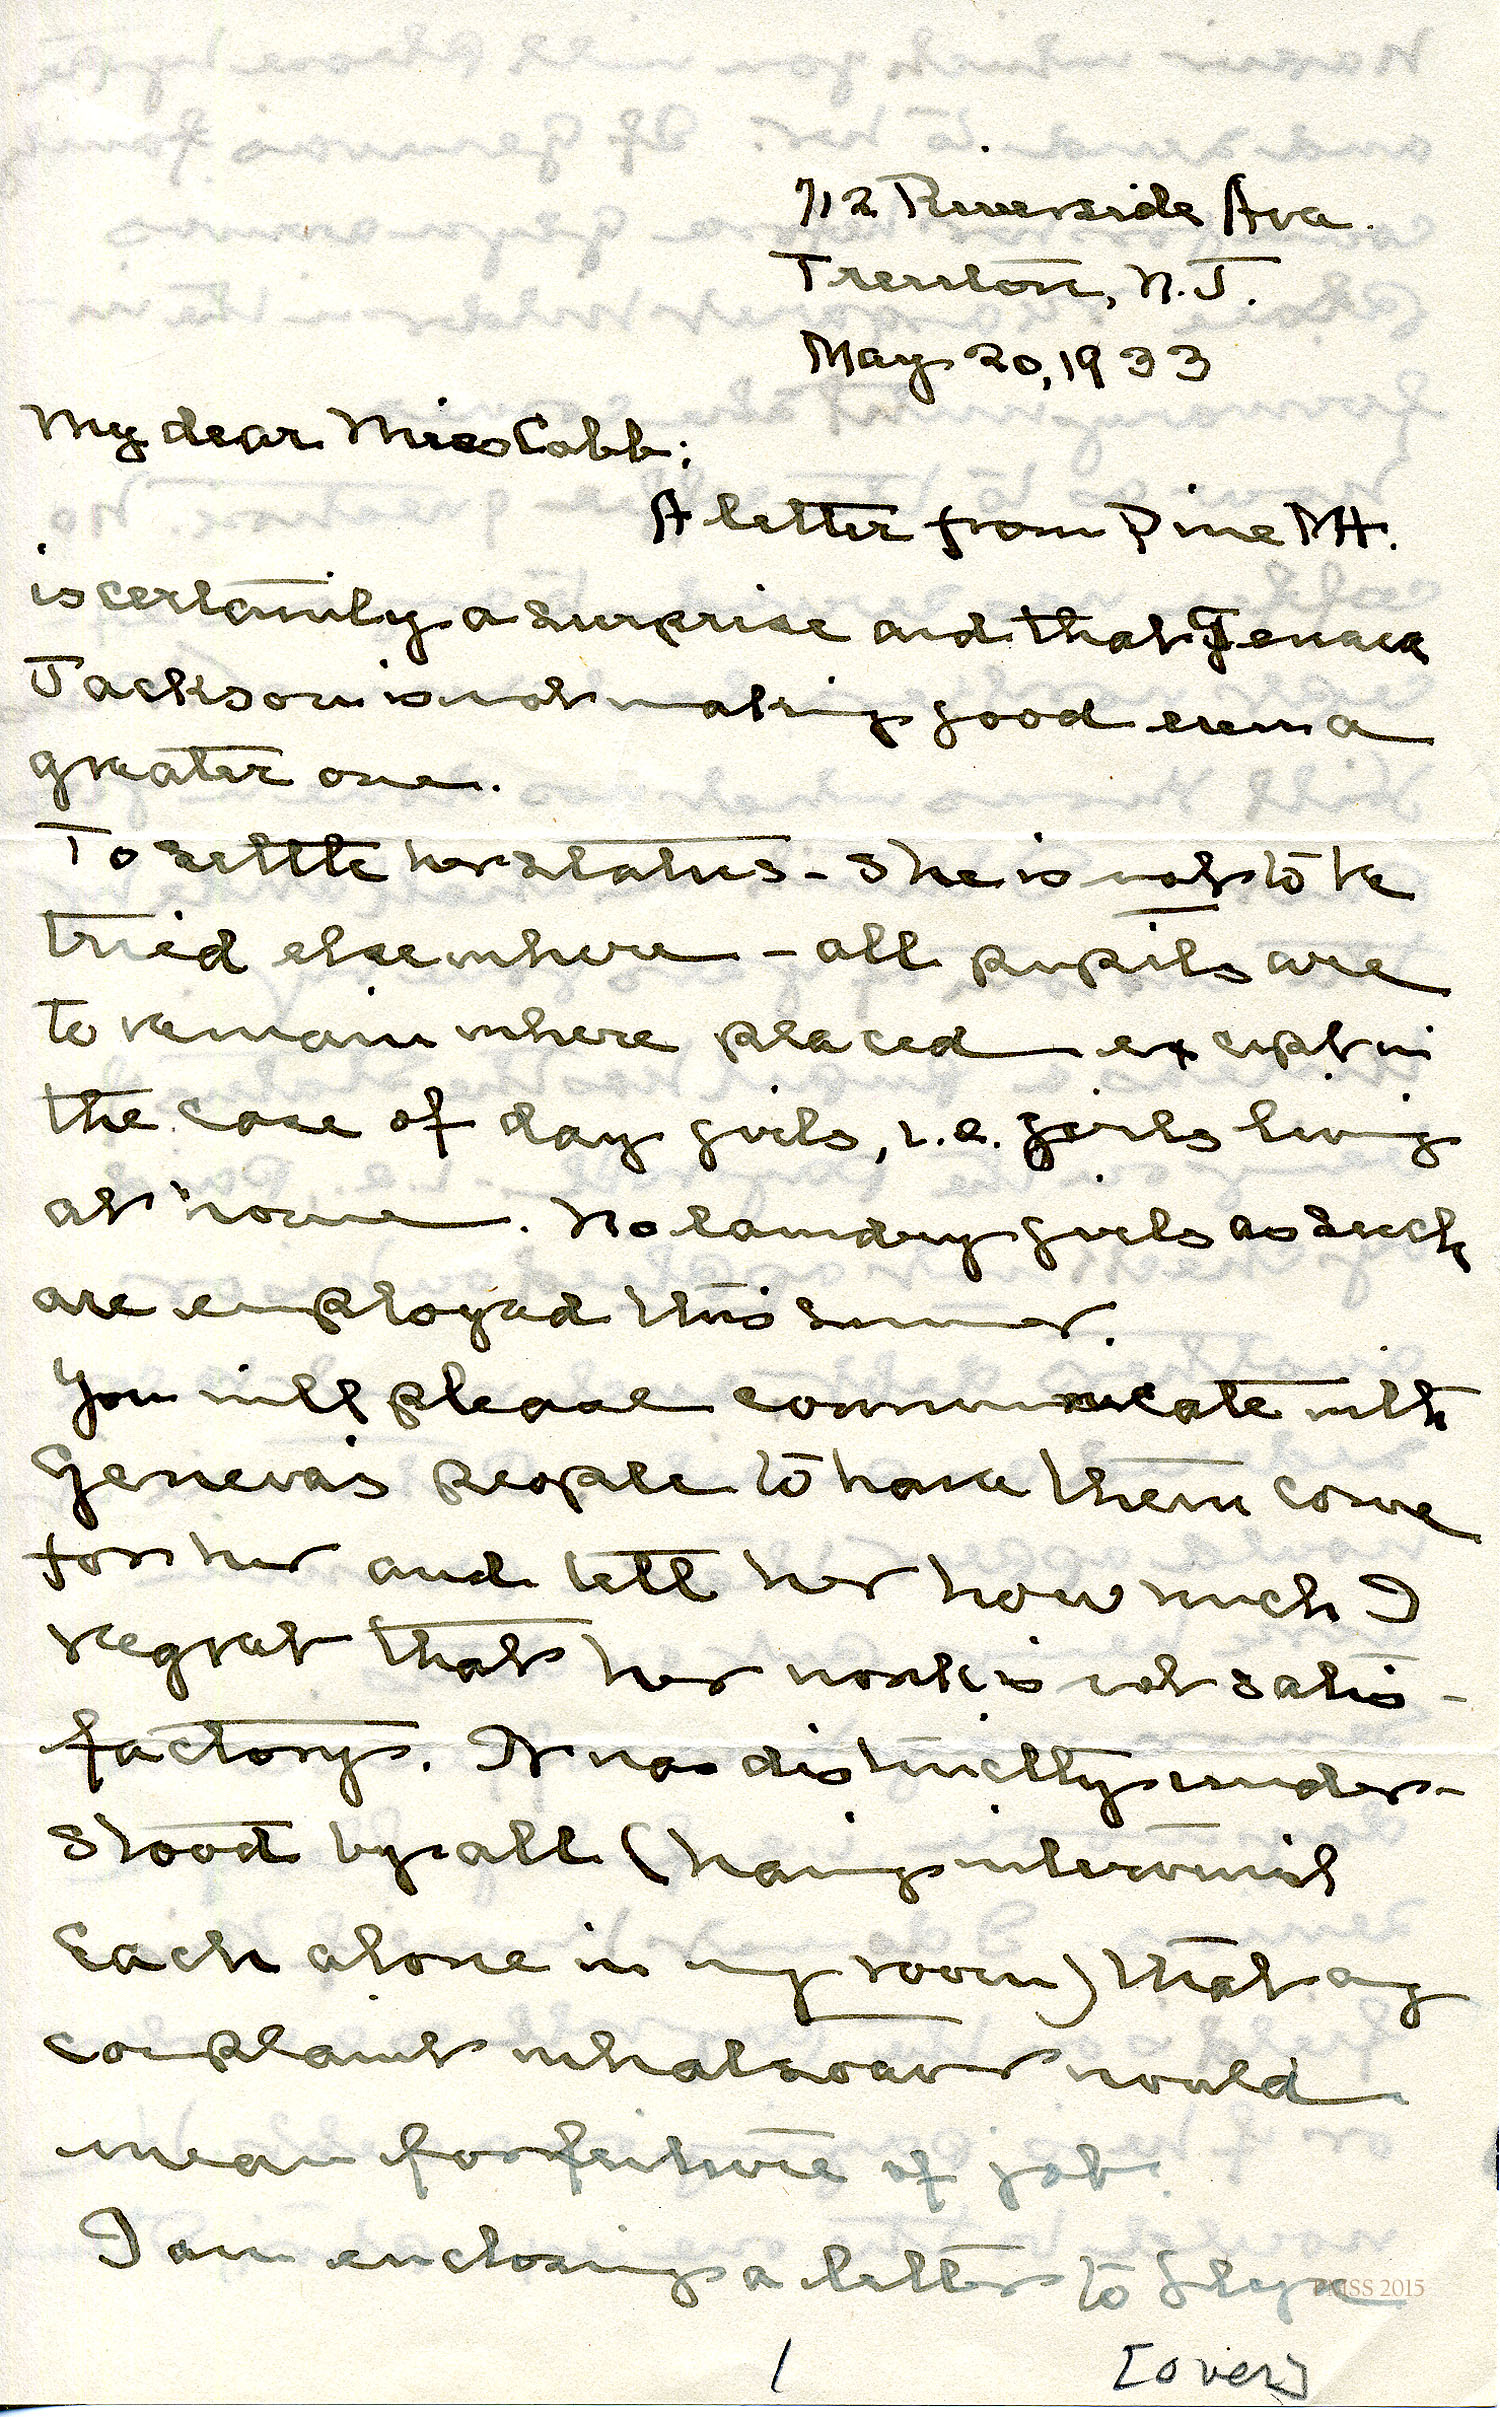 712 Riverside Ave.
Trenton, N.J.
May 20, 1933
My dear Miss Cobb:
A letter from Pine Mt.
is certainly a surprise and that Geneva
Jackson is not making good even a
greater one.
To settle her status - She is not to be
tried elsewhere - all pupils are
to remain where placed except in
the case of day girls, i.e. girls living
at home. No laundry girls as such
are employed this summer.
You will please communicate with
Geneva's people to have them come
for her and tell her how much I
regret that her work is not satis-
factory. It was distinctly under-
stood by all (having interviewed
each alone in my room) that any
complaint whatsoever would
mean forfeiture of job.
I am enclosing a letter to
1 [over]
PMSS 2015